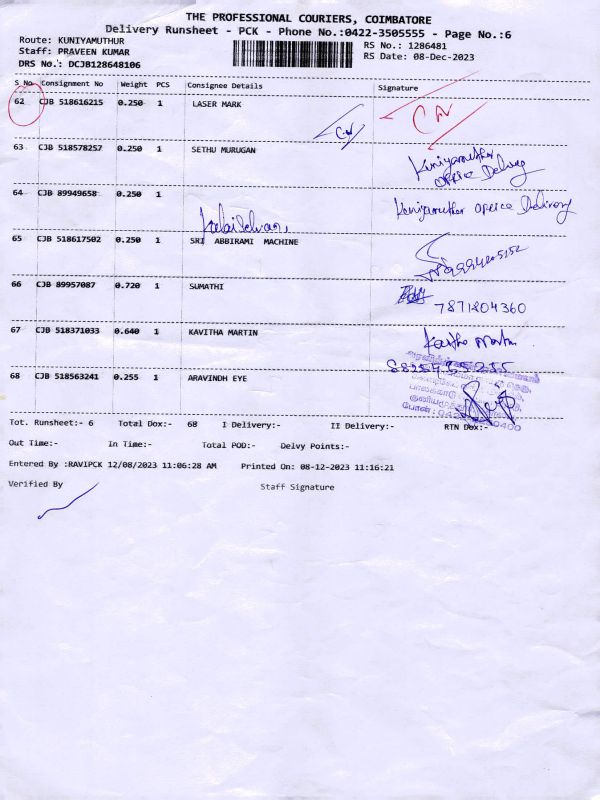 THE PROFESSIONAL COURIERS, COIMBATORE
Delivery Runsheet - PCK - Phone No.:0422-3505555 - Page No.:6
Route: KUNIYAMUTHUR
RS No.: 1286481
Staff: PRAVEEN KUMAR
RS Date: 08-Dec-2023
DRS No.: DCJB128648106
S No Consignment No Weight PCS Consignee Details Signature
62 CJB 518616215 0.250 1 LASER MARK
63 CJB 518578257 0.250 1 SETHU MURUGAN Kuniyamuthur office Delivery
64 CJB 89949658 0.250 1 Kuniyamuthur office Delivery
65 CJB 518617502 0.250 1 SRI ABBIRAMI MACHINE
66 CJB 89957087 0.720 1 SUMATHI 7871204360
67 CJB 518371033 0.640 1 KAVITHA MARTIN Kavitha Martin
68 CJB 518563241 0.255 1 ARAVINDH EYE
Tot. Runsheet:- 6 Total Dox:- 68 I Delivery:- II Delivery:- RTN Dox:-
Out Time:- In Time:- Total POD:- Delvy Points:-
Entered By :RAVIPCK 12/08/2023 11:06:28 AM Printed On: 08-12-2023 11:16:21
Verified By Staff Signature